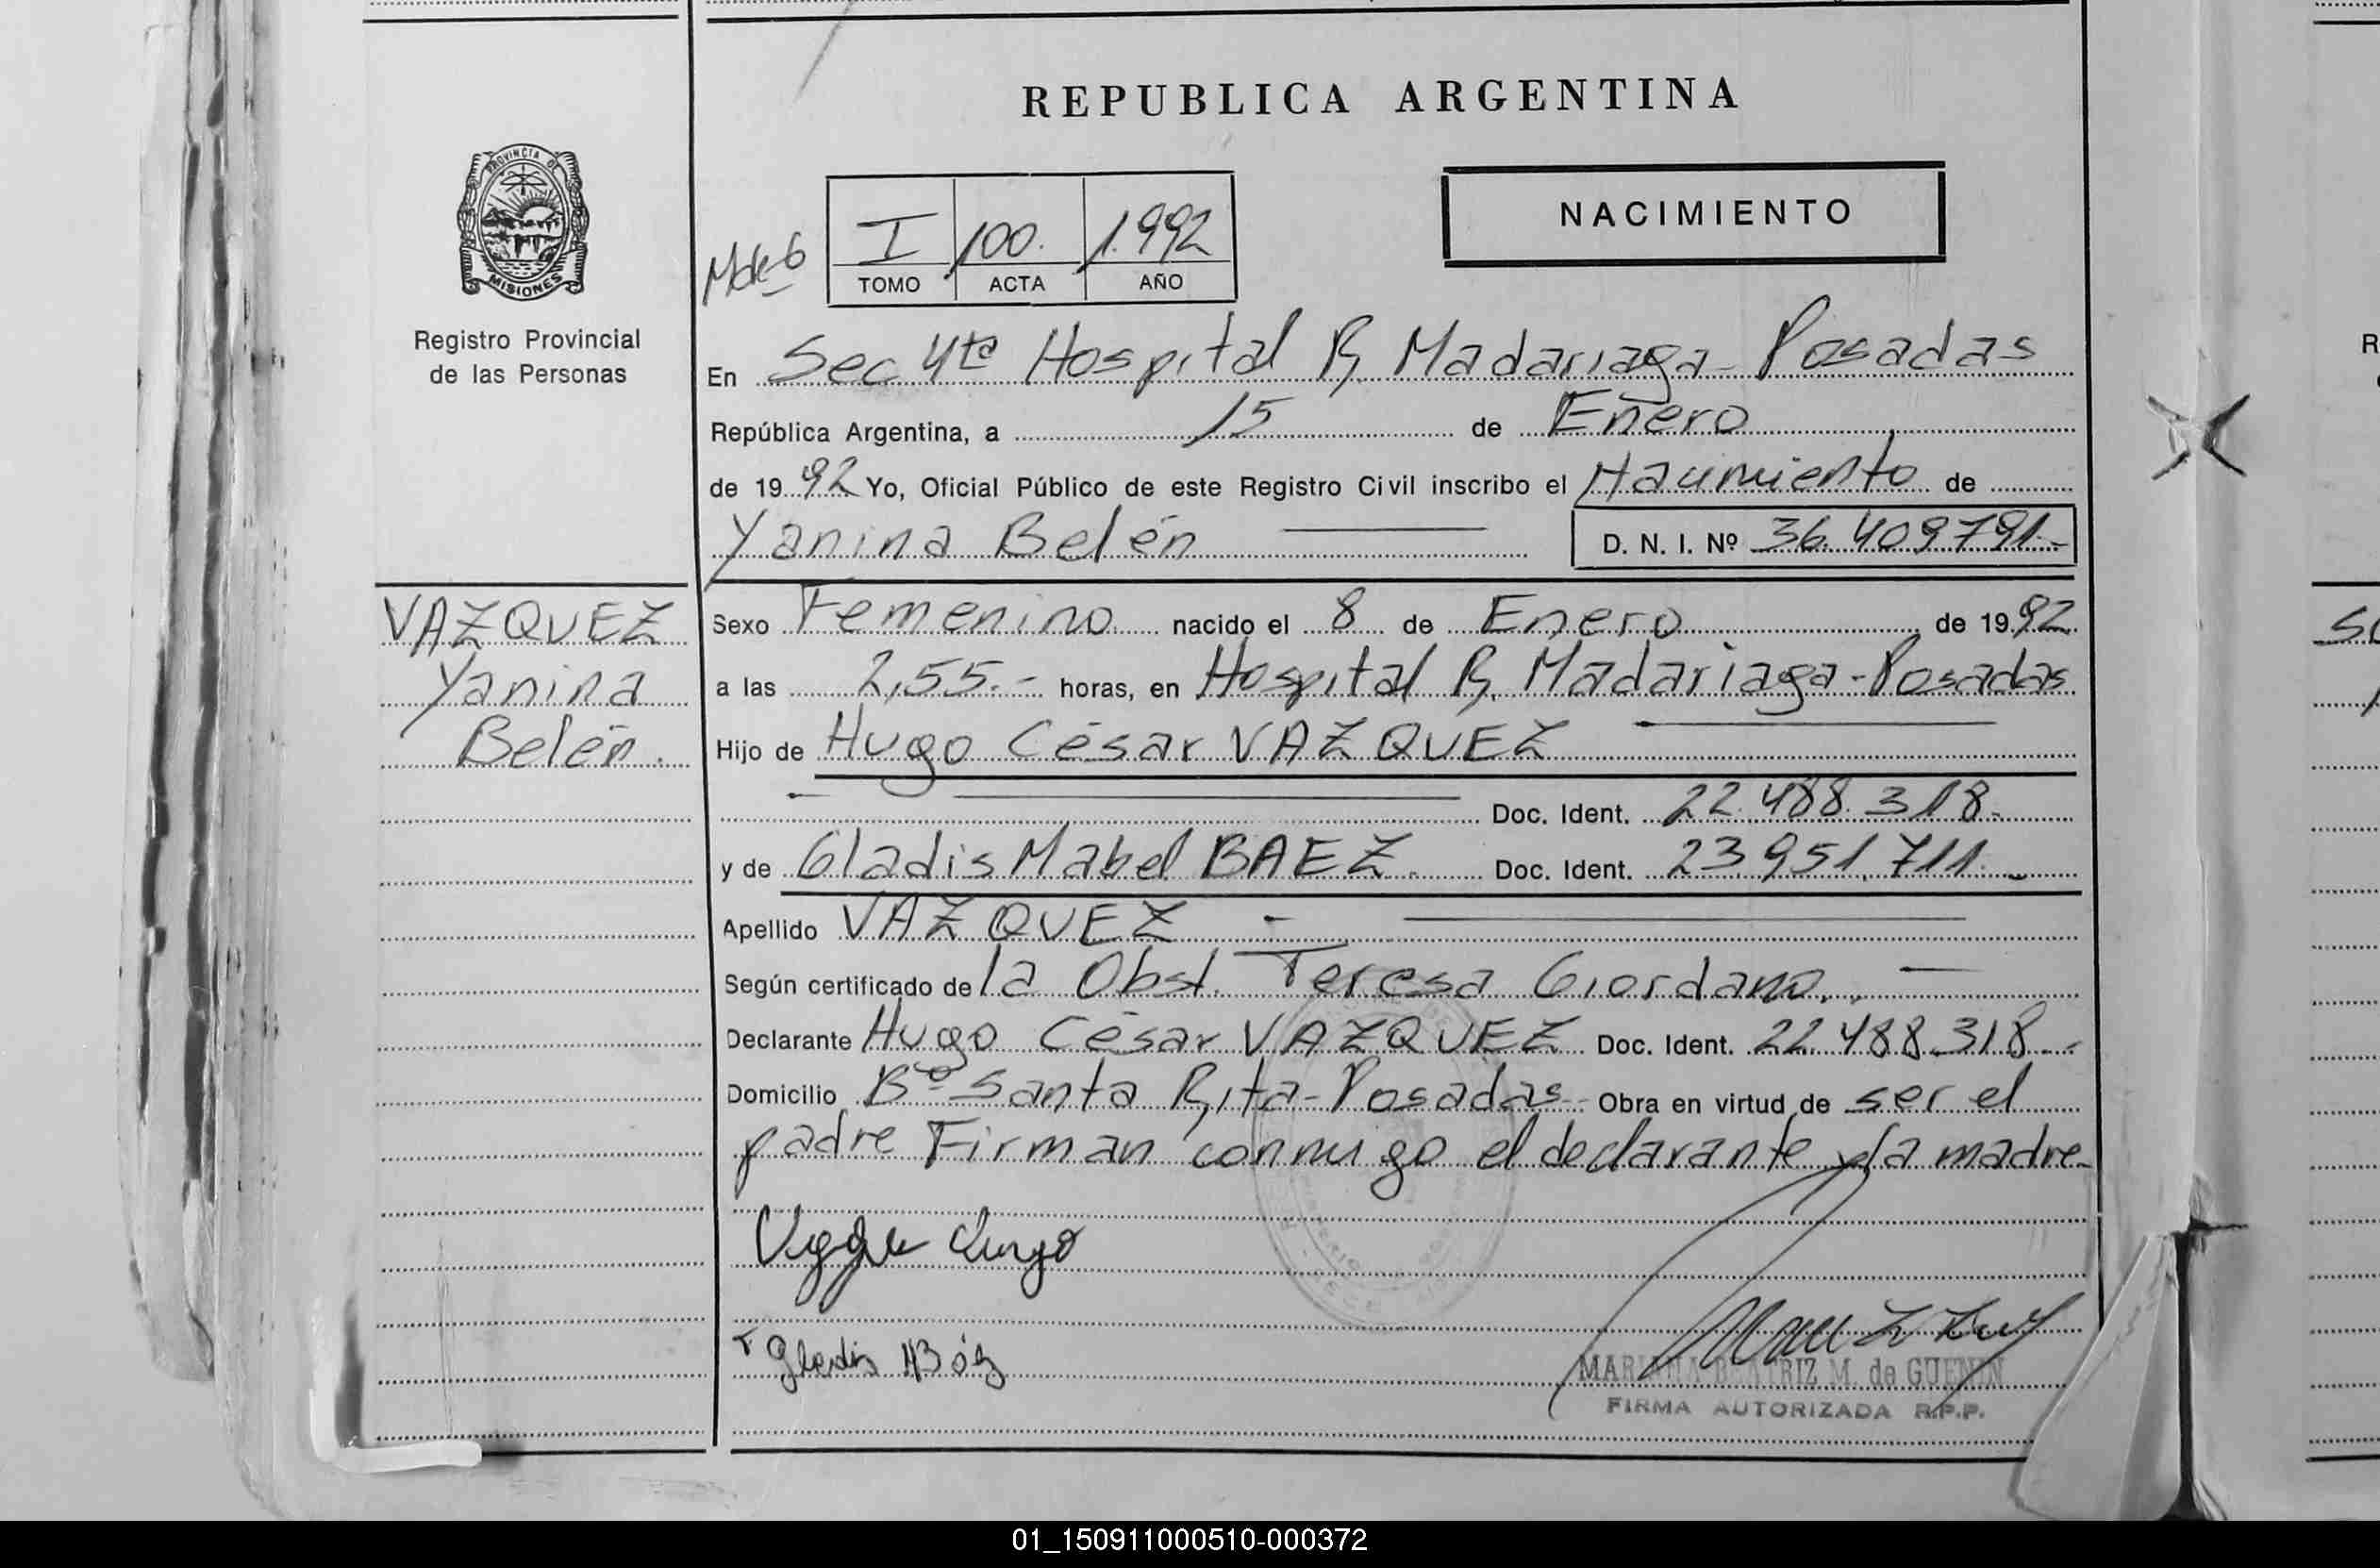 REPUBLICA ARGENTINA
PROVINCIA DE
MISIONES
Registro Provincial
de las Personas
I 100. 1.992
TOMO ACTA AÑO
NACIMIENTO
En Sec 4ta Hospital R. Madariaga - Posadas
República Argentina, a 15 de Enero
de 1992 Yo, Oficial Público de este Registro Civil inscribo el Nacimiento de
Yanina Belén D. N. I. Nº 36.409791.-
VAZQUEZ
Yanina
Belén.
Sexo Femenino nacido el 8 de Enero de 1992
a las 2,55.- horas, en Hospital R. Madariaga - Posadas
Hijo de Hugo César VAZQUEZ
Doc. Ident. 22.488.318.-
y de Gladis Mabel BAEZ. Doc. Ident. 23.951.711.-
Apellido VAZQUEZ -
Según certificado de la Obst. Teresa Giordano.
Declarante Hugo César VAZQUEZ Doc. Ident. 22.488.318.-
Domicilio Bº Santa Rita - Posadas - Obra en virtud de ser el
padre Firman conmigo el declarante y la madre.
MARIANA BEATRIZ M. de GUENIN
FIRMA AUTORIZADA R.P.P.
01_150911000510-000372